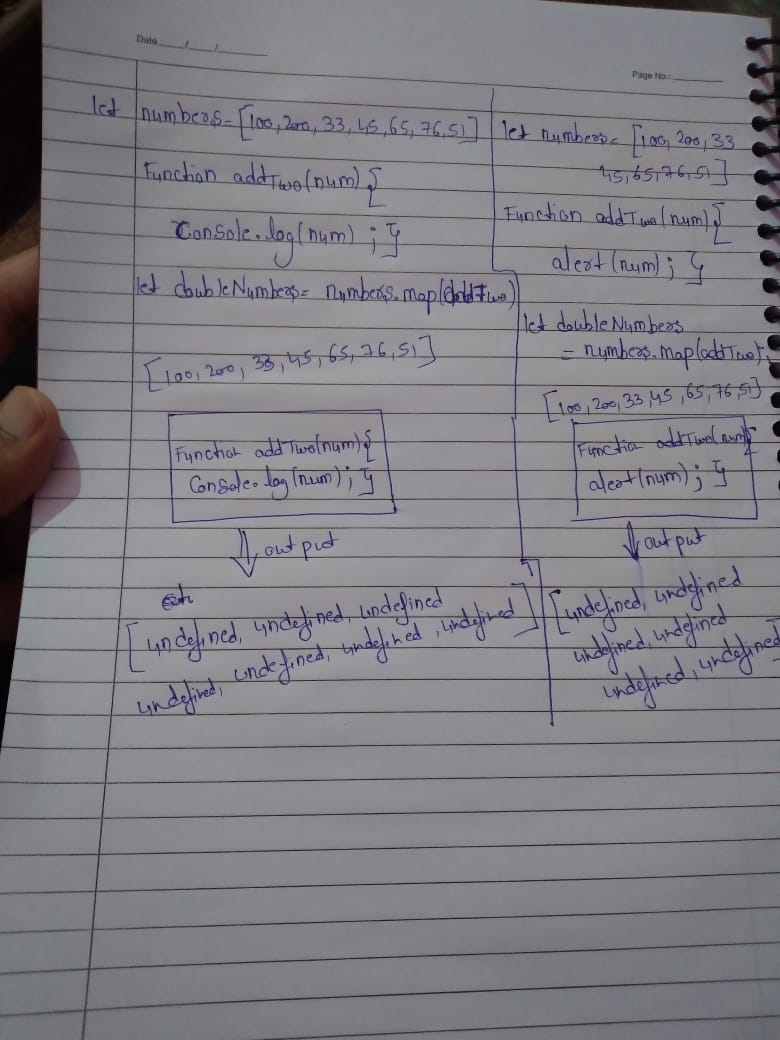 Date ___/___/______
Page No.: ________
let numbers = [100, 200, 33, 45, 65, 76, 51]
Function addTwo(num) {
Console.log(num) ; }
let doubleNumbers = numbers.map(addTwo)
[100, 200, 33, 45, 65, 76, 51]
Function addTwo(num) {
Console.log (num) ; }
output
[undefined, undefined, undefined
undefined, undefined, undefined, undefined]
let numbers = [100, 200, 33
45, 65, 76, 51]
Function addTwo(num) {
alert(num) ; }
let doubleNumbers
= numbers.map(addTwo);
[100, 200, 33, 45, 65, 76, 51]
Function addTwo(num) {
alert(num) ; }
output
[undefined, undefined
undefined, undefined
undefined, undefined